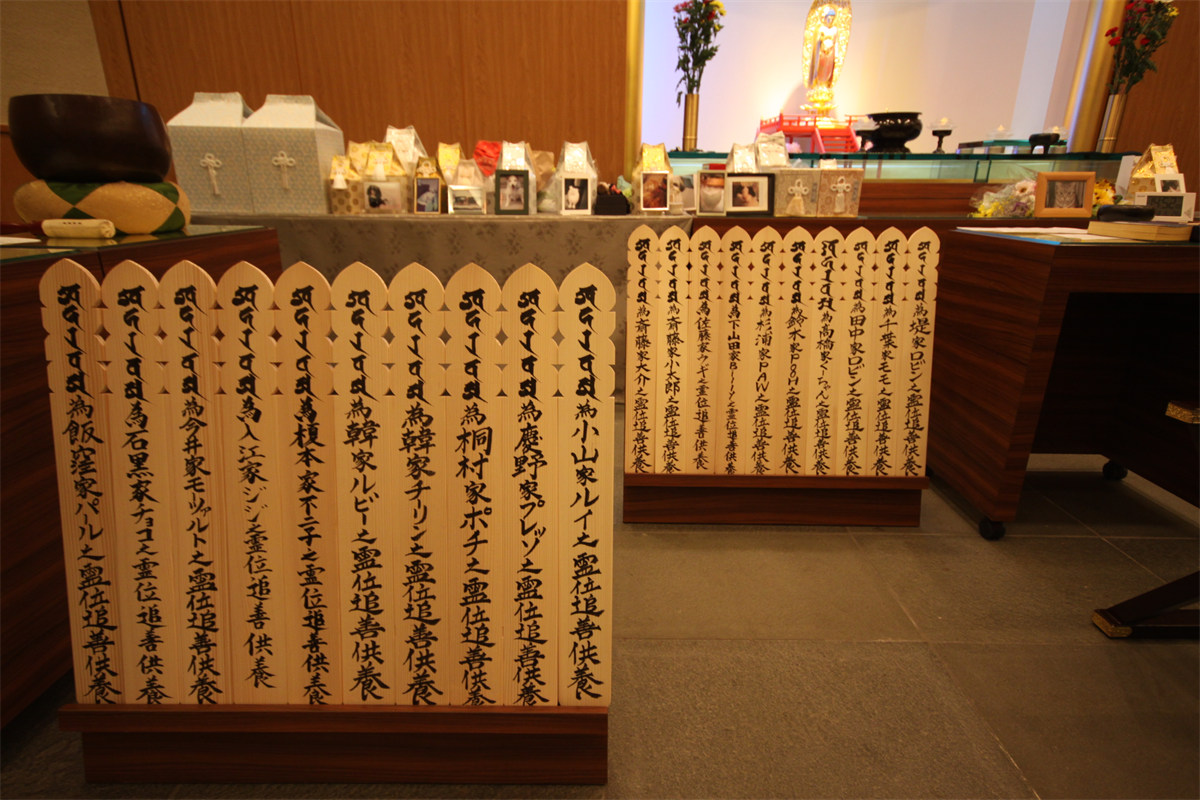 為堤家ロビン之霊位追善供養
為千葉家モモ之霊位追善供養
為田中家ロビン之霊位追善供養
為高橋家くーちゃん之霊位追善供養
為鈴木家POOH之霊位追善供養
為杉浦家PAN之霊位追善供養
為下山田家 之霊位追善供養
為佐藤家 之霊位追善供養
為斎藤家小太郎之霊位追善供養
為斎藤家大介之霊位追善供養
為小山家ルイ之霊位追善供養
為慶野家プレッソ之霊位追善供養
為桐村家ポチ之霊位追善供養
為韓家チリン之霊位追善供養
為韓家ルビー之霊位追善供養
為榎本家不二子之霊位追善供養
為入江家ジジ之霊位追善供養
為今井家モーツァルト之霊位追善供養
為石黒家チョコ之霊位追善供養
為飯窪家パール之霊位追善供養